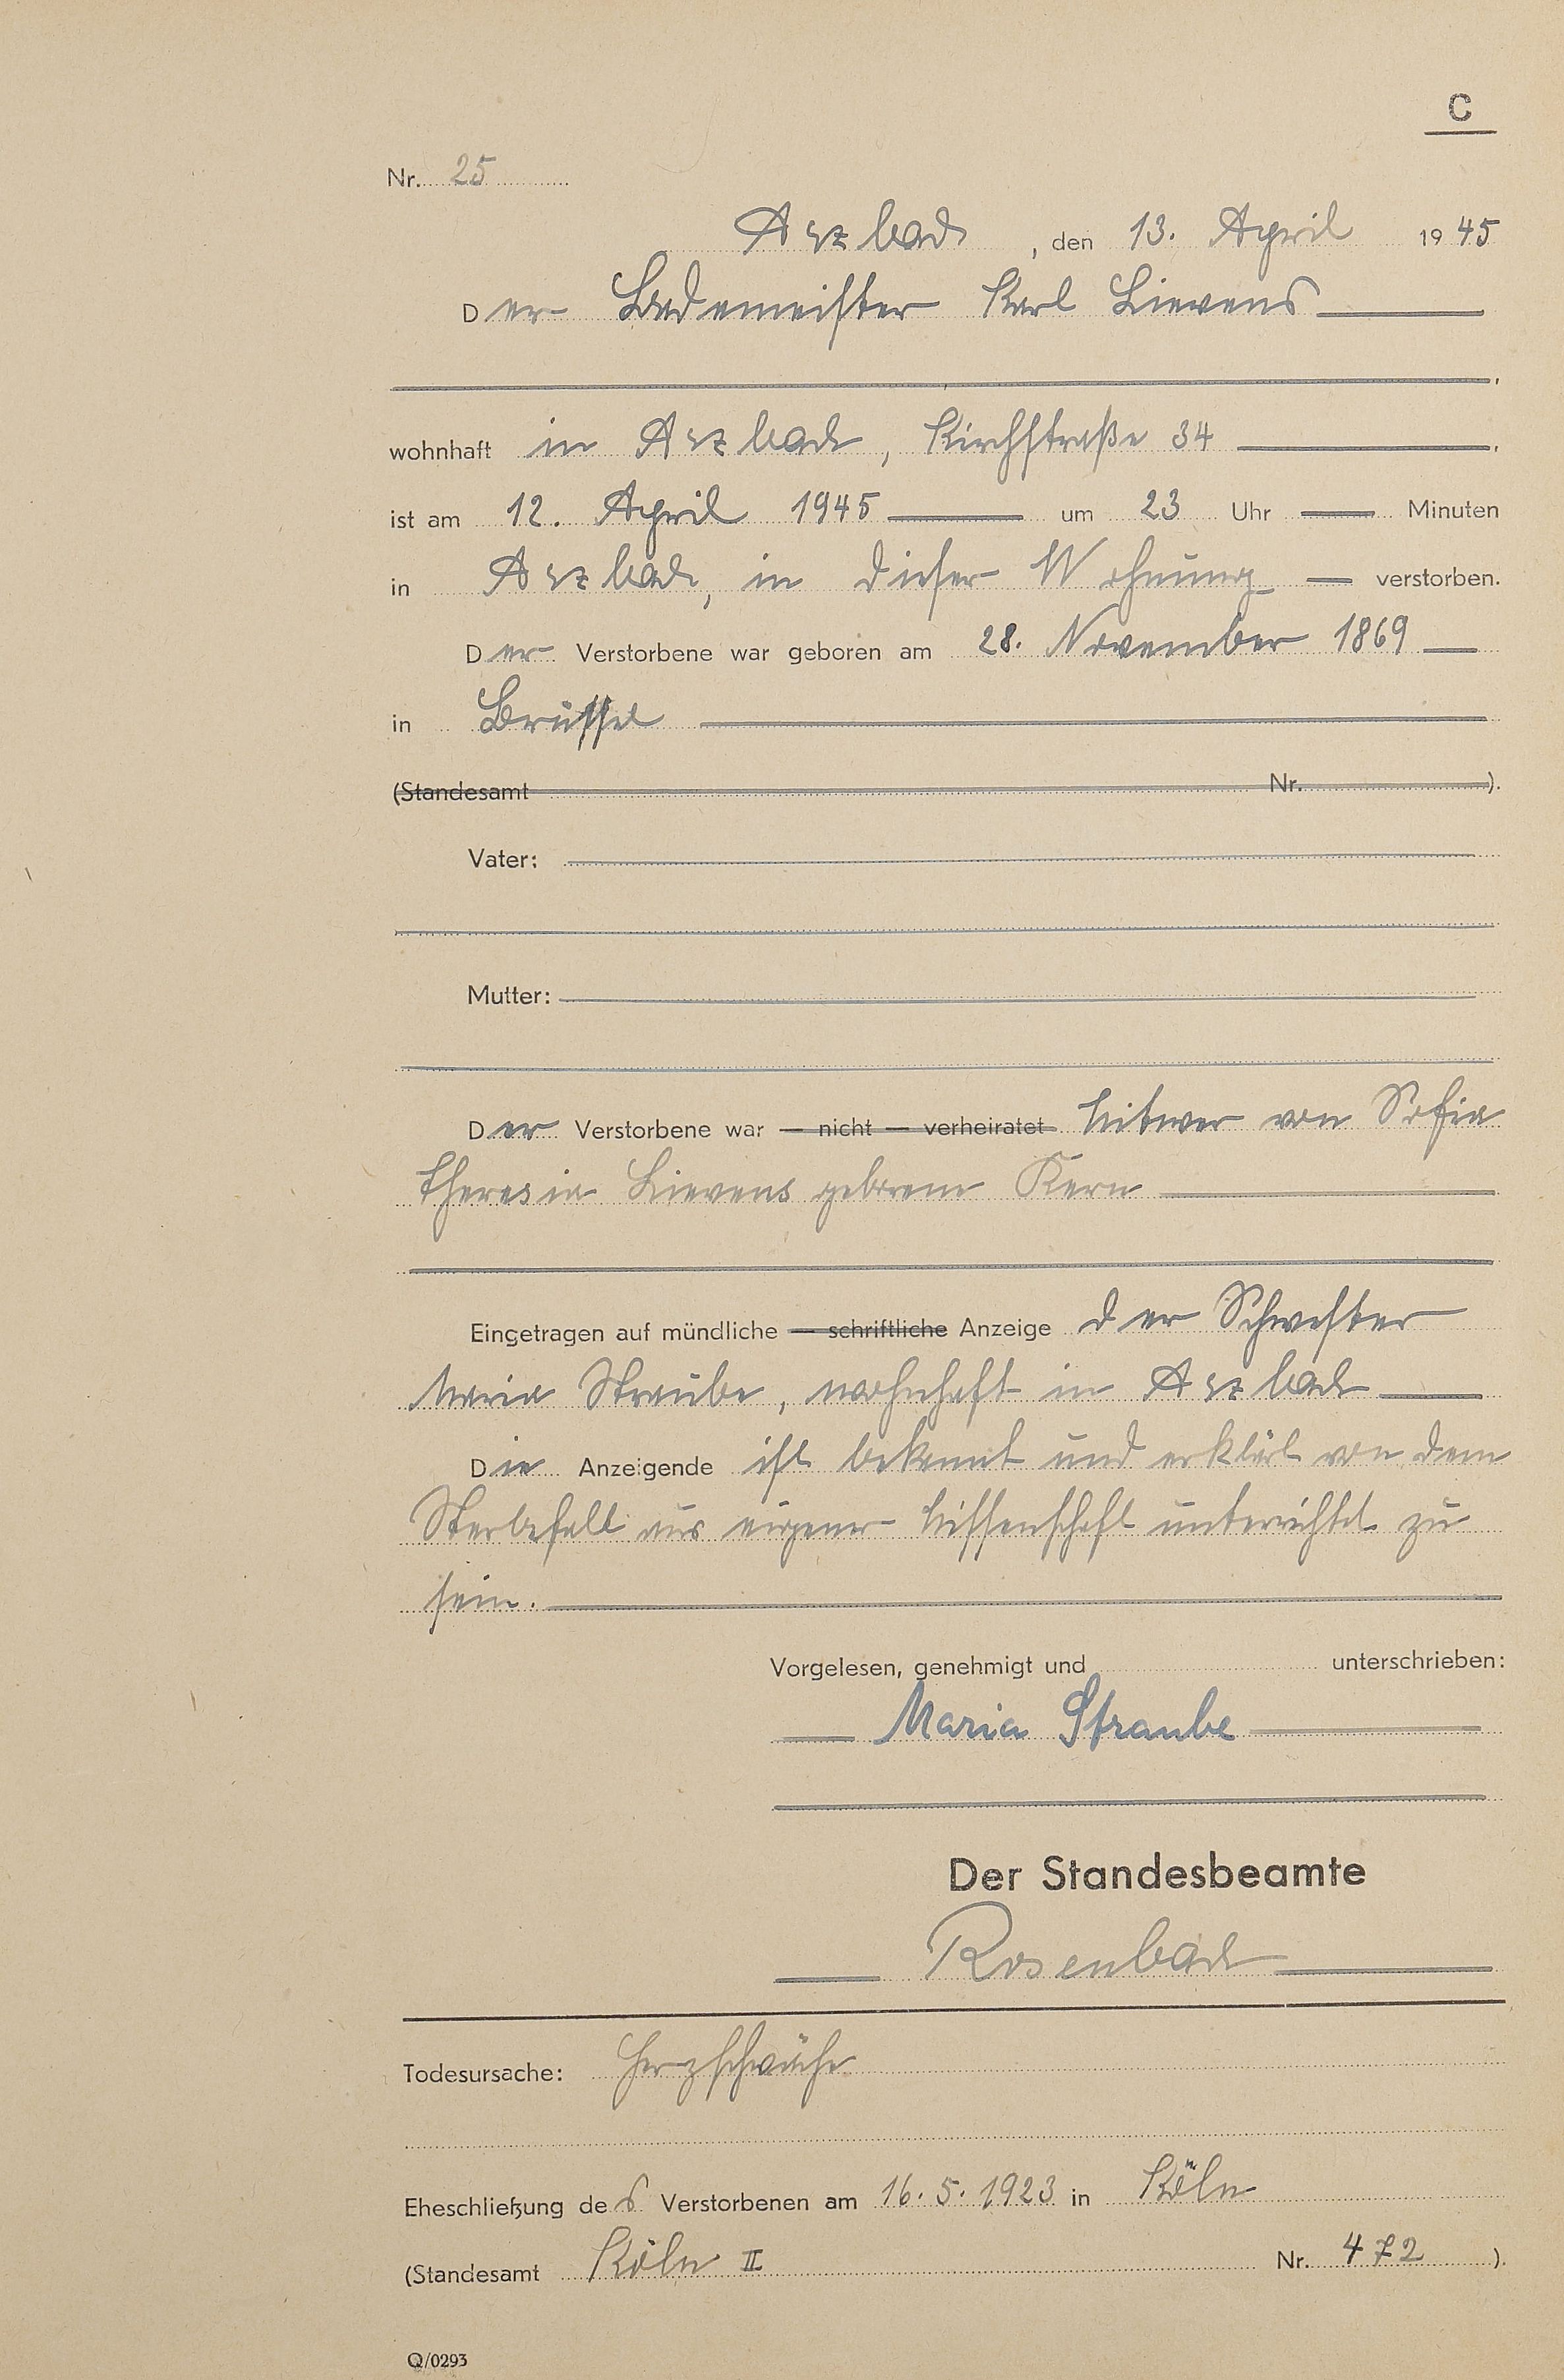 C
Nr. 25
Arzbach, den 13. April 1945
Der Bademeister Karl Lievens
wohnhaft in Arzbach, Kirchstraße 34
ist am 12. April 1945 um 23 Uhr Minuten
in Arzbach, in dieser Wohnung verstorben.
Der Verstorbene war geboren am 28. November 1869
in Brüssel
(Standesamt Nr. ).
Vater:
Mutter:
Der Verstorbene war — nicht — verheiratet Witwer von Sofia
Theresia Lievens geborene Kern
Eingetragen auf mündliche — schriftliche Anzeige der Schwester
Maria Straube, wohnhaft in Arzbach
Die Anzeigende ist bekannt und erklärt von dem
Sterbefall aus eigener Wissenschaft unterrichtet zu
sein.
Vorgelesen, genehmigt und unterschrieben:
Maria Straube
Der Standesbeamte
Rosenbach
Todesursache: Herzschwäche
Eheschließung des Verstorbenen am 16.5.1923 in Köln
(Standesamt Köln II Nr. 472 ).
Q/0293